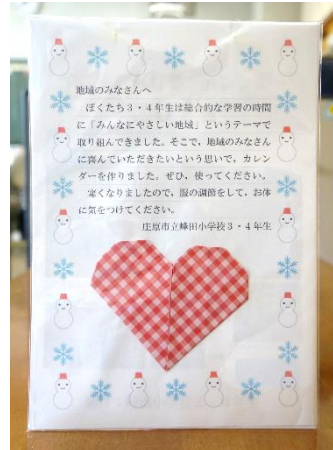 地域のみなさんへ
ぼくたち3・4年生は総合的な学習の時間
に「みんなにやさしい地域」というテーマで
取り組んできました。そこで、地域のみなさん
に喜んでいただきたいという思いで、カレン
ダーを作りました。ぜひ、使ってください。
寒くなりましたので、服の調節をして、お体
に気をつけてください。
庄原市立峰田小学校3・4年生